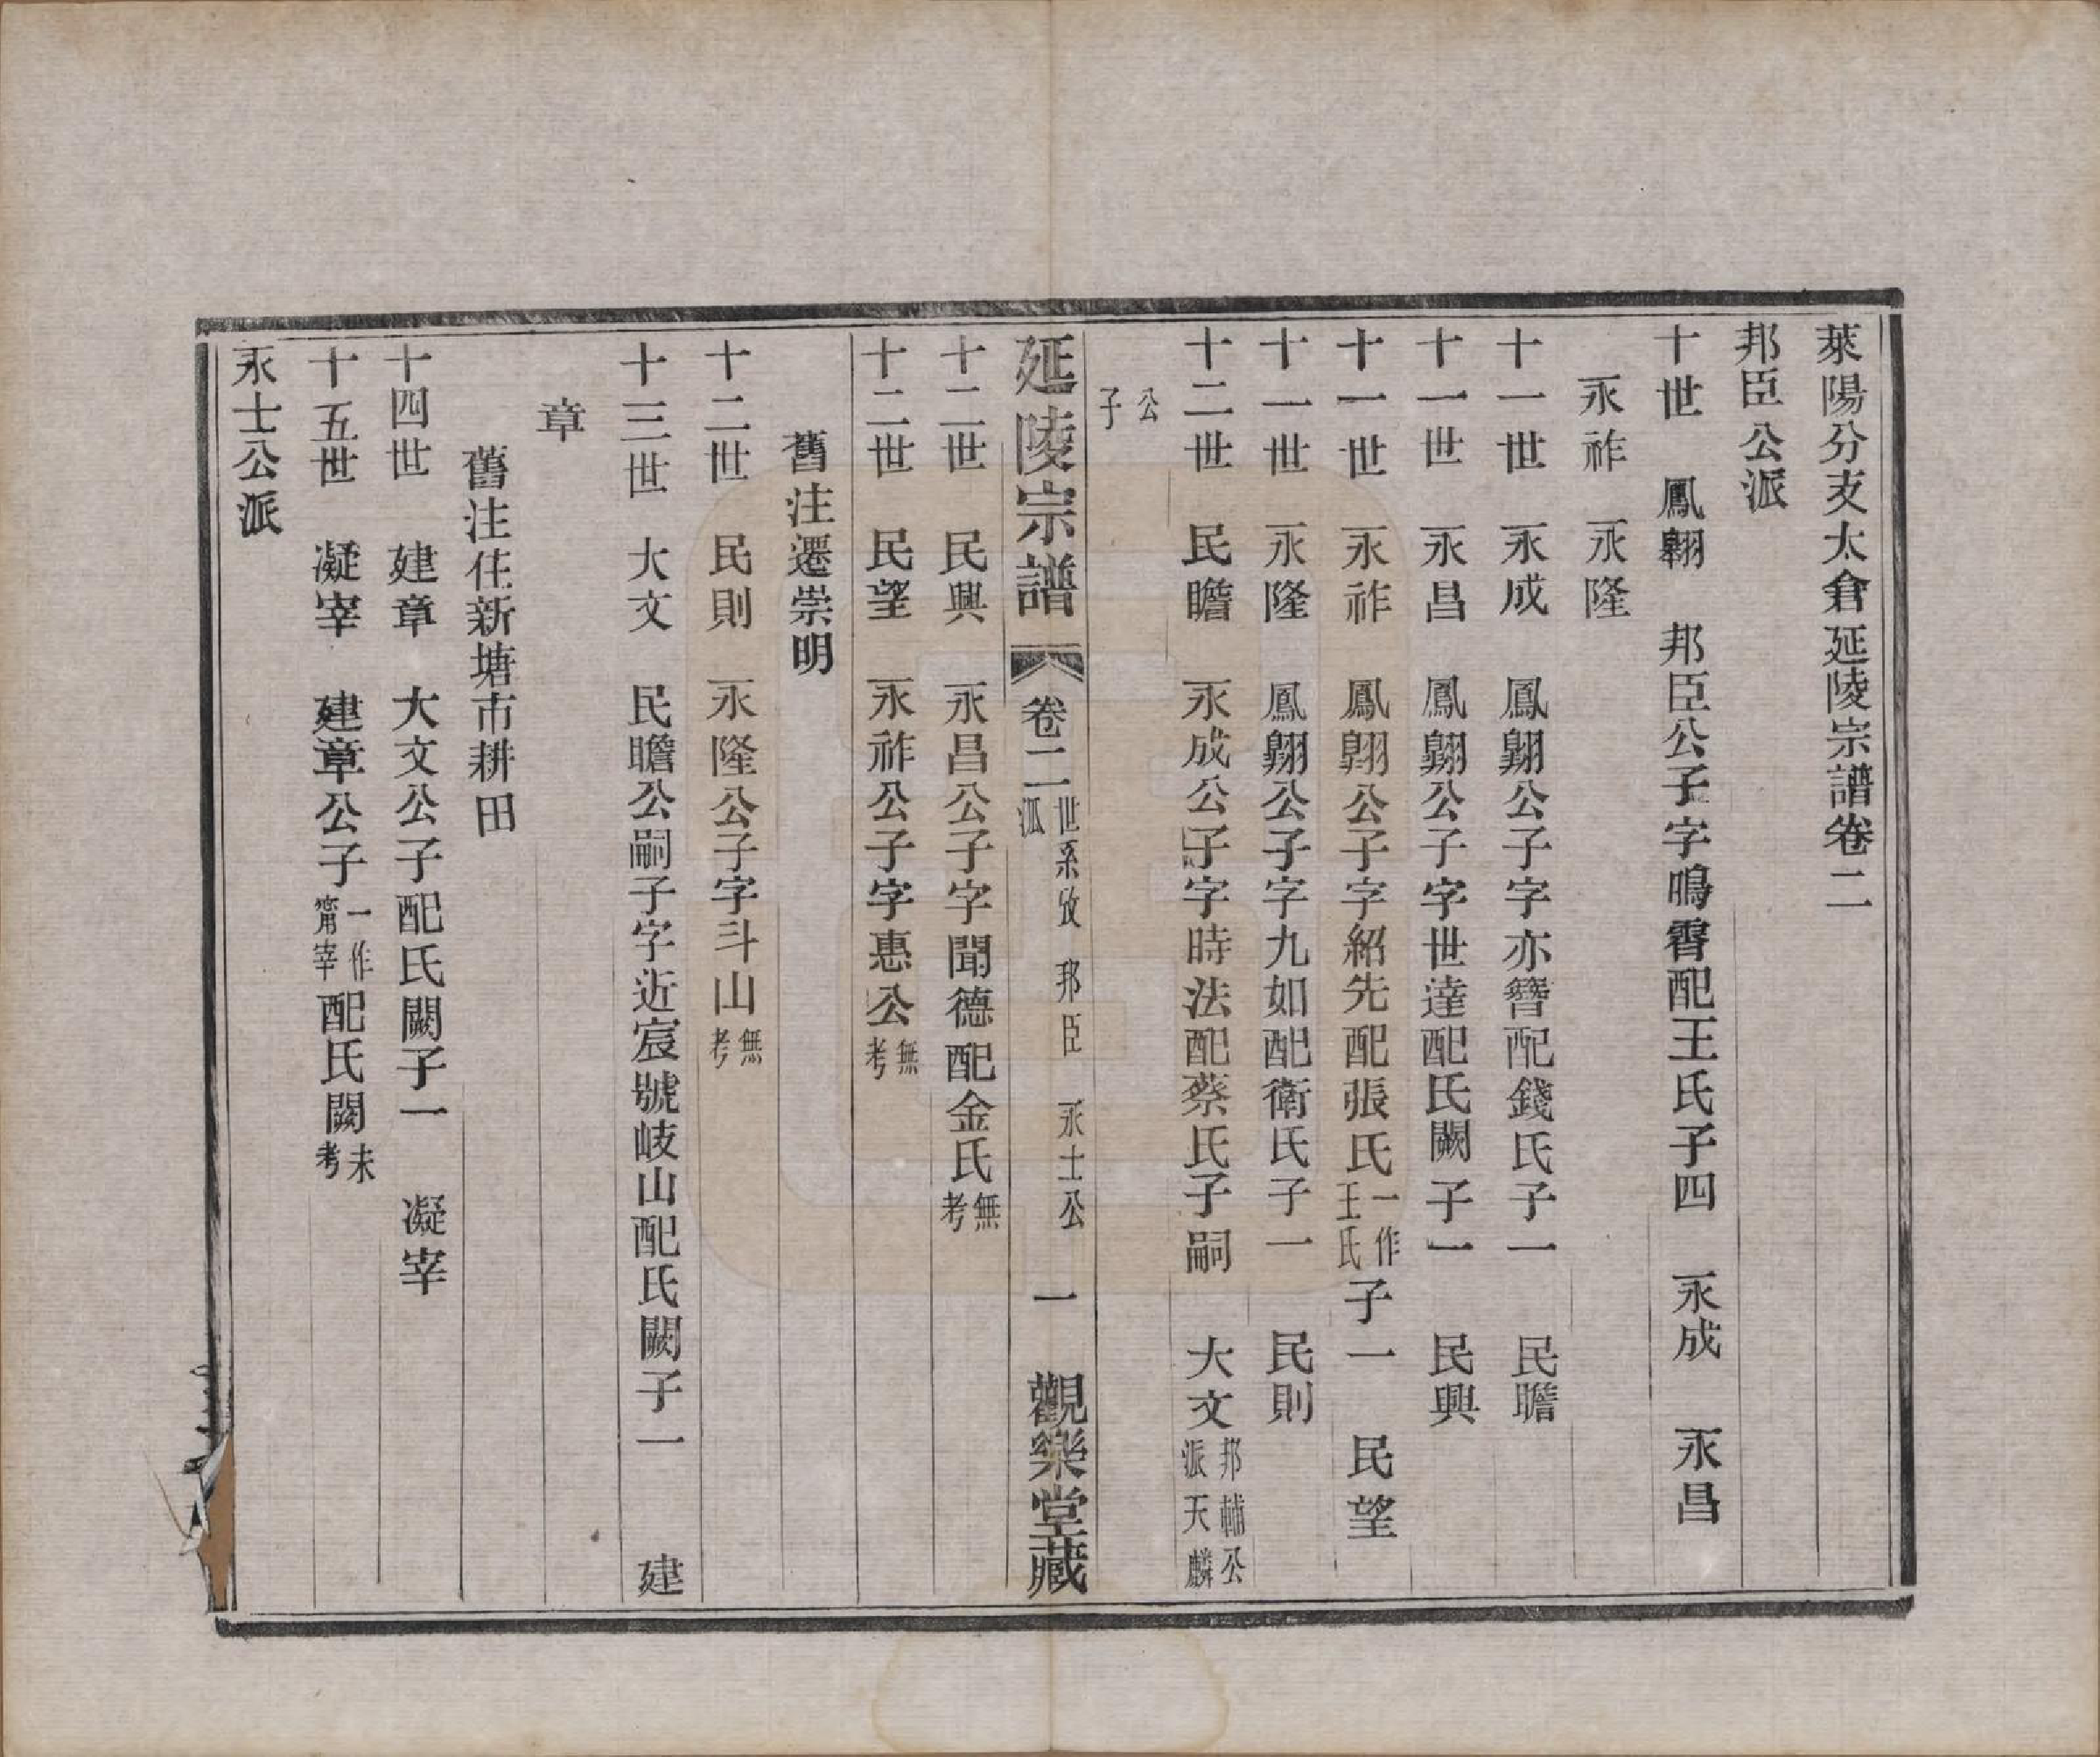 萊陽分支太倉延陵宗譜卷二
邦臣公派
十世　鳳翺　邦臣公子字鳴霄配王氏子四　永成　永昌
永祚　永隆
十一世　永成　鳳翺公子字亦簪配錢氏子一　民瞻
十一世　永昌　鳳翺公子字世達配氏闕子一　民興
十一世　永祚　鳳翺公子字紹先配張氏一作王氏子一　民望
十一世　永隆　鳳翺公子字九如配衛氏子一　民則
十二世　民瞻　永成公子字時法配蔡氏子嗣　大文邦輔公派天麟
公子
延陵宗譜　卷二　世系攷　邦臣　永士公派　一　觀樂堂藏
十二世　民興　永昌公子字聞德配金氏無考
十二世　民望　永祚公子字惠公無考
舊注遷崇明
十二世　民則　永隆公子字斗山無考
十三世　大文　民瞻公嗣子字近宸號岐山配氏闕子一　建
章
舊注住新塘市耕田
十四世　建章　大文公子配氏闕子一　凝宰
十五世　凝宰　建章公子一作甯宰配氏闕未考
永士公派